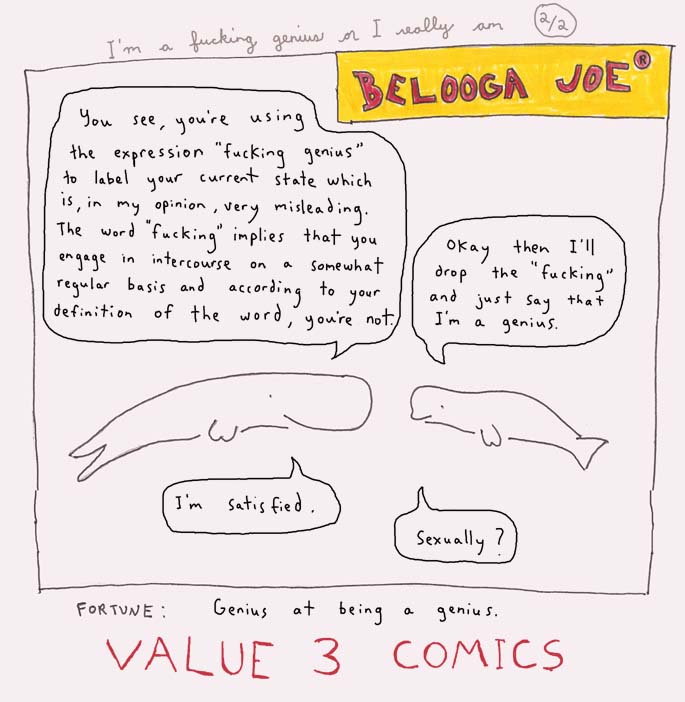 I'm a fucking genius or I really am 2/2
BELOOGA JOE®
You see, you're using
the expression "fucking genius"
to label your current state which
is, in my opinion, very misleading.
The word "fucking" implies that you
engage in intercourse on a somewhat
regular basis and according to your
definition of the word, you're not.
Okay then I'll
drop the "fucking"
and just say that
I'm a genius.
I'm satisfied.
Sexually?
FORTUNE: Genius at being a genius.
VALUE 3 COMICS